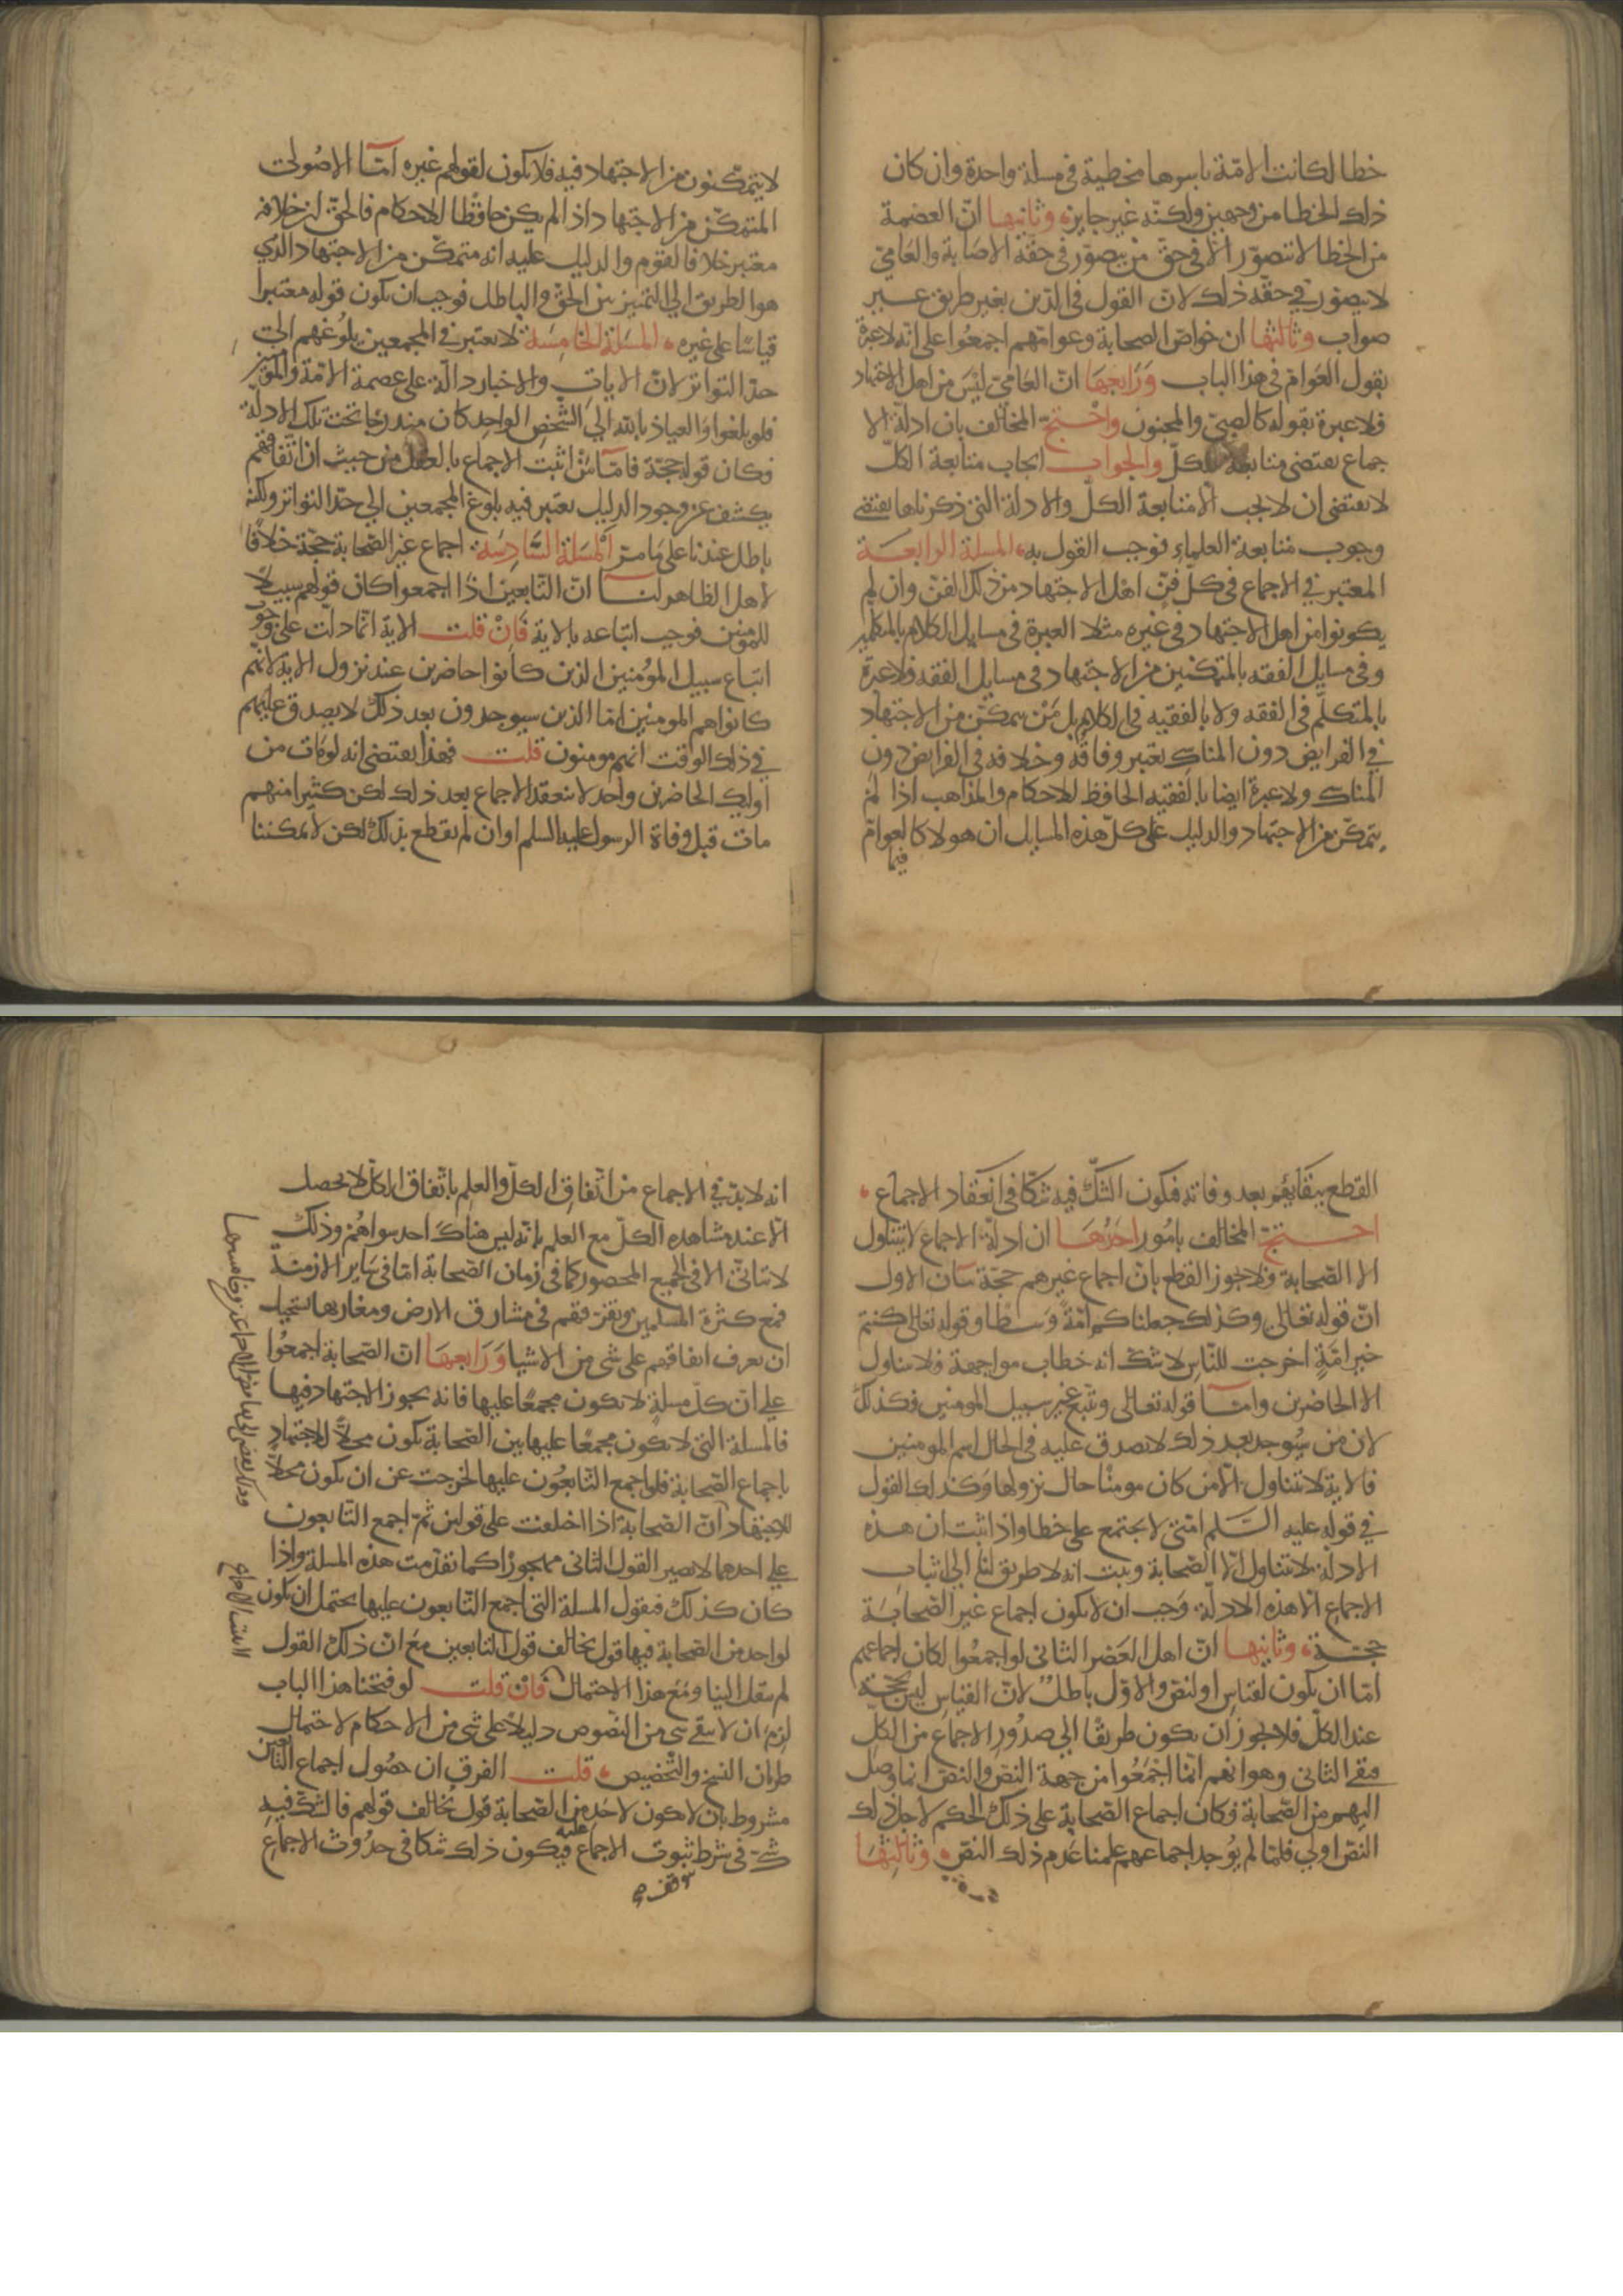 خطا لكانت الامّة باسرها مخطية في مسلة واحدة وان كان
ذلك الخطا من وجهين ولكنّه غير جايز، وثانيها انّ العصمة
من الخطا لا تتصوّر الّا في حقّ من يتصوّر في حقّه الاصابة والعاميّ
لا يتصوّر في حقّه ذلك لانّ القول في الدّين بغير طريق غير
صواب وثالثها ان خواصّ الصحابة وعوامّهم اجمعوا على انّه لا عبرة
بقول العوامّ في هذا الباب ورابعها انّ العاميّ ليس من اهل الاجتهاد
فلا عبرة بقوله كالصبيّ والمجنون واحتجّ المخالف بان ادلّة الا
جماع يقتضى متابعة الكلّ والجواب ايجاب متابعة الكلّ
لا يقتضى ان لا يجب الّا متابعة الكلّ والادلة التي ذكرناها يقتضى
وجوب متابعة العلماء فوجب القول به، المسلة الرابعة
المعتبر في الاجماع في كلّ فنّ اهل الاجتهاد من ذلك الفنّ وان لم
يكونوا من اهل الاجتهاد في غيره مثلا العبرة في مسايل الكلام بالمتكلمين
وفي مسايل الفقه بالمتمكنين من الاجتهاد في مسايل الفقه فلا عبرة
بالمتكلّم في الفقه ولا بالفقيه في الكلام بل من يتمكّن من الاجتهاد
في الفرايض دون المناسك يعتبر وفاقه وخلافه في الفرايض دون
المناسك ولا عبرة ايضا بالفقيه الحافظ للاحكام والمذاهب اذا لم
يتمكّن من الاجتهاد والدليل على كلّ هذه المسايل ان هولا كالعوامّ
فيما
لا يتمكّنون من الاجتهاد فيه فلا يكون لقولهم غيره امّا الاصوليّ
المتمكّن من الاجتهاد اذا لم يكن حافظا للاحكام فالحقّ ان خلافه
معتبر خلافا لقوم والدليل عليه انه متمكّن من الاجتهاد الذي
هو الطريق الى التمييز بين الحقّ والباطل فوجب ان يكون قوله معتبرا
قياسا على غيره، المسلة الخامسة لا يعتبر في المجمعين بلوغهم الى
حدّ التواتر لانّ الايات والاخبار دالّة على عصمة الامّة والمؤمنين
فلو بلغوا والعياذ بالله الى الشخص الواحد كان مندرجا تحت تلك الادلة
فكان قوله حجّة فامّا من اثبت الاجماع بالعقل من حيث انّ اتّفاقهم
يكشف عن وجود الدليل يعتبر فيه بلوغ المجمعين الى حدّ التواتر ولكنّه
باطل عندنا على ما مرّ المسلة السّادسة، اجماع غير الصّحابة حجّة خلافا
لاهل الظاهر لنا انّ التّابعين اذا اجمعوا كان قولهم سبيلا
للمؤمنين فوجب اتباعه بالاية فان قلت الاية انّما دلّت على وجوب
اتباع سبيل المؤمنين الذين كانوا حاضرين عند نزول الاية لانّهم
كانوا هم المومنين امّا الذين سيوجدون بعد ذلك لا يصدق عليهم
في ذلك الوقت انهم مومنون قلت فهذا يقتضى انه لو مات من
اوليك الحاضرين واحد لا ينعقد الاجماع بعد ذلك لكن كثيرا منهم
مات قبل وفاة الرسول عليه السلم او ان لم يقطع بذلك لكن لا يمكننا
القطع ببقايهم بعد وفاته فيكون الشّكّ فيه شكّا في انعقاد الاجماع،
احتجّ المخالف بامور احدها ان ادلّة الاجماع لا تتناول
الا الصّحابة فلا يجوز القطع بانّ اجماع غيرهم حجّة بيان الاول
انّ قوله تعالى وكذلك جعلناكم امّة وسطا وقوله تعالى كنتم
خير امّة اخرجت للنّاس لا شكّ انه خطاب مواجهة فلا يتناول
الا الحاضرين وامّا قوله تعالى ويتّبع غير سبيل المومنين فكذلك
لان من سيُوجد بعد ذلك لا يصدق عليه في الحال اسم المومنين
فالاية لا تتناول الّا من كان مومنا حال نزولها وكذلك القول
في قوله عليه السّلم امّتي لا يجتمع على خطا واذا ثبت ان هذه
الادلّة لا تتناول الّا الصّحابة وثبت انه لا طريق لنا الى اثبات
الاجماع الّا هذه الادلّة، وجب ان لا يكون اجماع غير الصّحابة
حجّة، وثانيها انّ اهل العصر الثاني لو اجمعوا لكان اجماعهم
امّا ان يكون لقياس او لنصّ والاوّل باطل لانّ القياس ليس بحجّة
عند الكلّ فلا يجوز ان يكون طريقا الى صدور الاجماع من الكلّ
فبقى الثاني وهو انهم انّما اجمعوا من جهة النصّ والنصّ انما وصل
اليهم من الصّحابة فكان اجماع الصّحابة على ذلك الحكم لاجل ذلك
النصّ اولى فلمّا لم يوجد اجماعهم علمنا عدم ذلك النصّ، وثالثها
انه لا بدّ في الاجماع من اتّفاق الكلّ والعلم باتّفاق الكلّ لا يحصل
الّا عند مشاهده الكلّ مع العلم بانّه ليس هناك احد سواهم وذلك
لا يتاتّى الا في الجمع المحصور كما في زمان الصّحابة امّا في ساير الازمنة
فمع كثرة المسلمين وتفرّقهم في مشارق الارض ومغاربها يستحيل
ان يعرف اتفاقهم على شى من الاشيا ورابعها انّ الصّحابة اجمعوا
على انّ كلّ مسلة لا يكون مجمعا عليها فانه يجوز الاجتهاد فيها
فالمسلة التي لا يكون مجمعا عليها بين الصّحابة يكون محلّا للاجتهاد
باجماع الصّحابة فلو اجمع التّابعون عليها لخرجت عن ان يكون محلّا
للاجتهاد انّ الصّحابة اذا اختلفت على قولين ثمّ اجمع التّابعون
على احدهما لا يصير القول الثانى مهجورا كما تقدّمت هذه المسلة واذا
كان كذلك فيقول المسلة التي اجمع التّابعون عليها يحتمل ان يكون
لواحد من الصّحابة فيها قول يخالف قول التابعين مع انّ ذلك القول
لم ينقل الينا ومع هذا الاحتمال فان قلت لو فتحنا هذا الباب
لزم ان لا يبقى شى من النّصوص دليلا على شى من الاحكام لاحتمال
طريان النسخ والتّخصيص، قلت الفرق ان حصول اجماع التّابعين
مشروط بان لا يكون لاحد من الصّحابة قول يخالف قولهم فالشكّ فيه
شكّ في شرط ثبوت الاجماع فيكون ذلك شكا في حدوث الاجماع
عليه